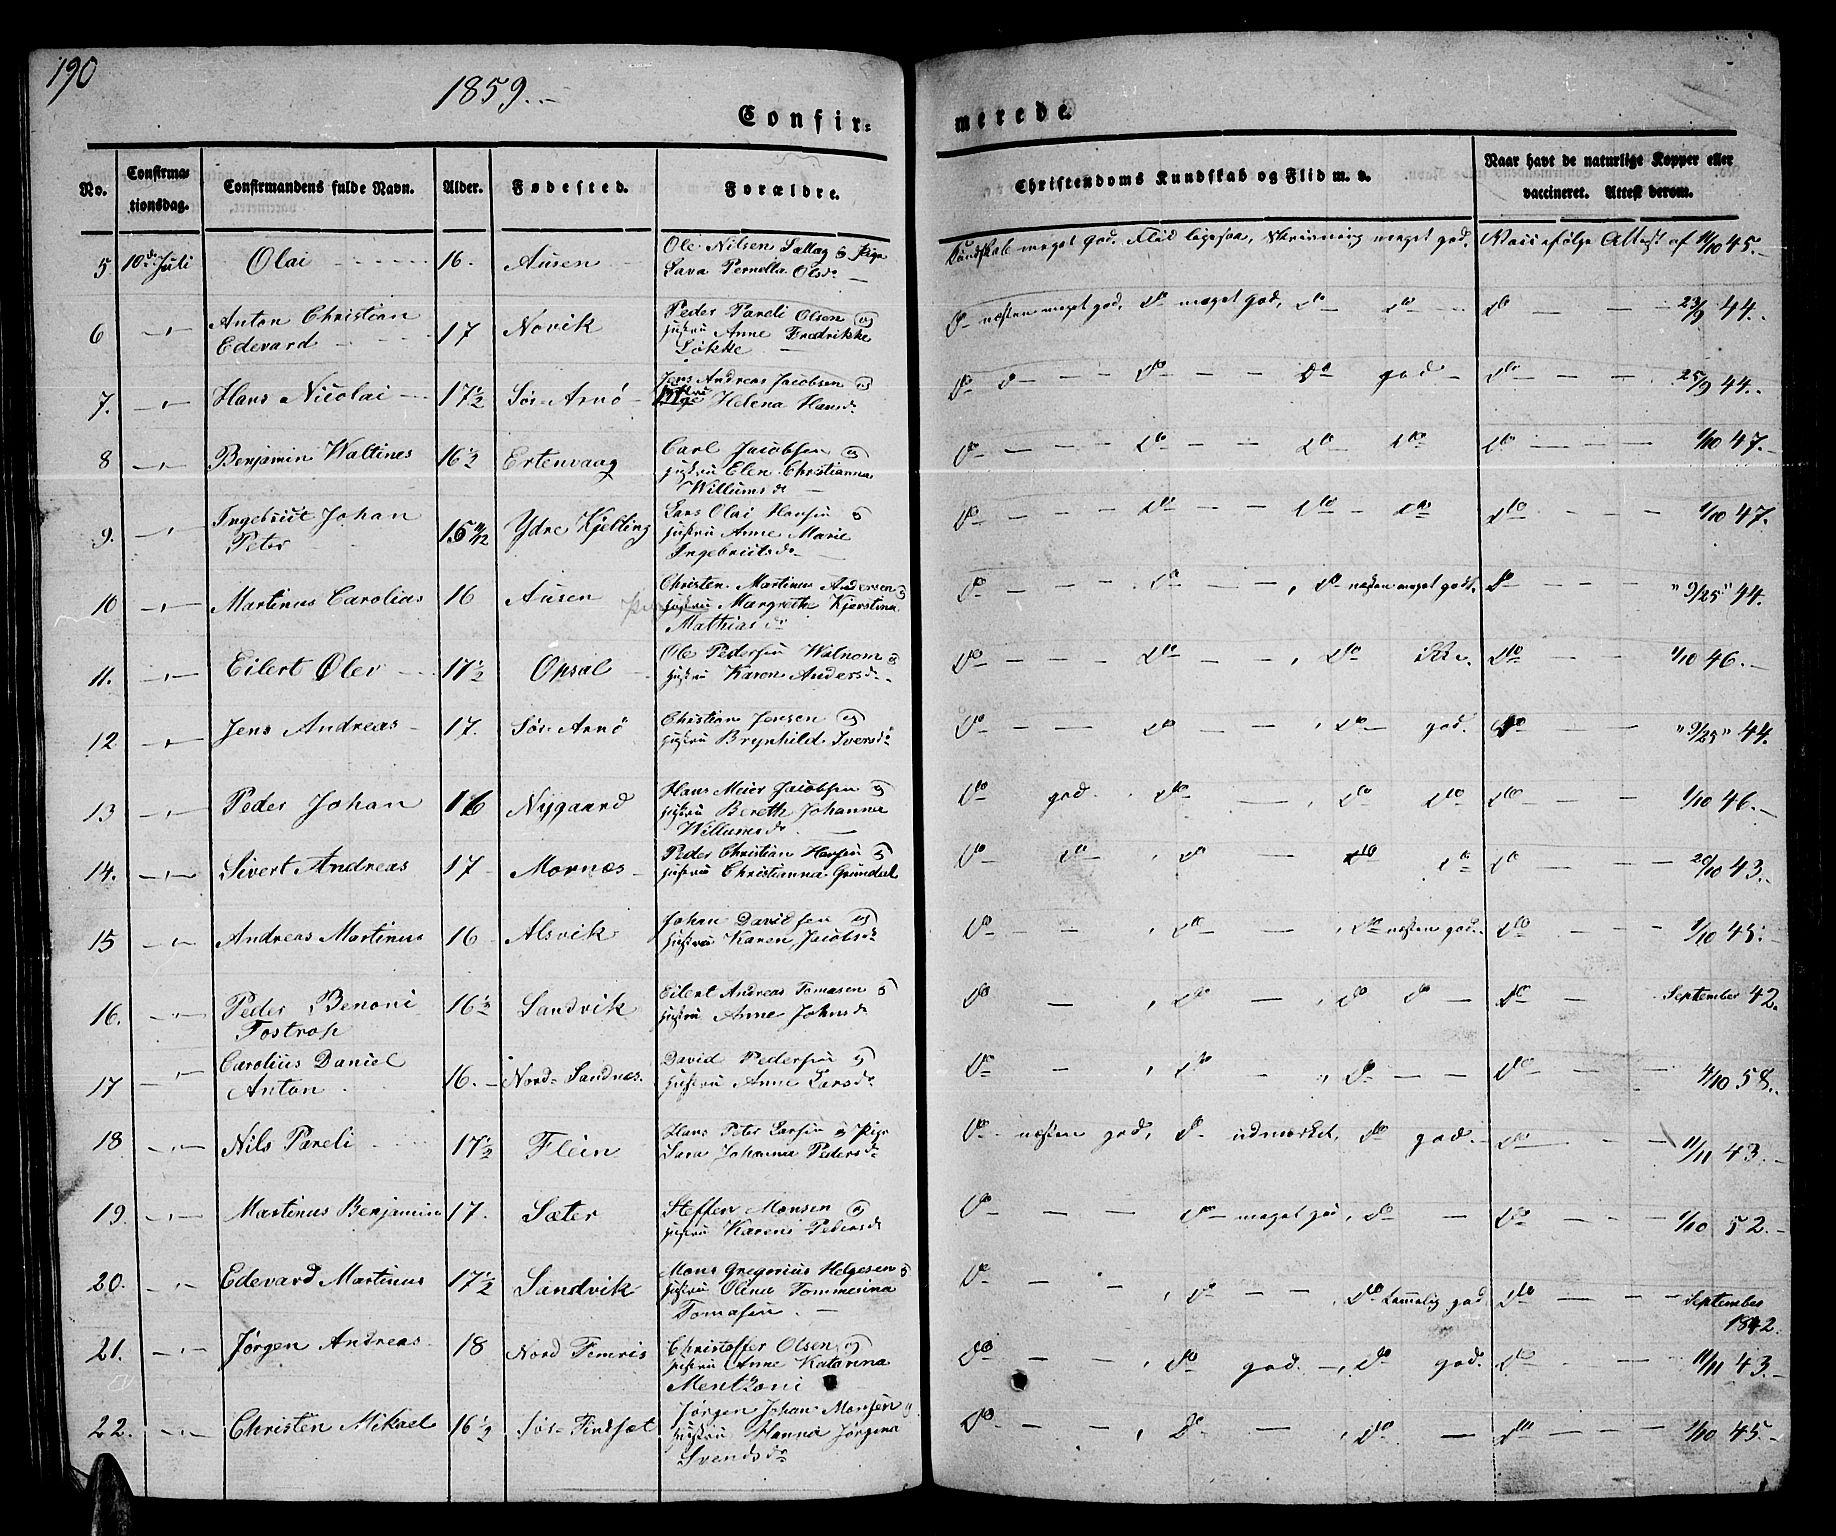 190
1859.
Confir=
merede.
No.
Confirma=
tionsdag.
Confirmandens fulde Navn.
Alder.
Fødested.
Forældre.
Christendoms Kundskab og Flid m. v.
Naar havt de naturlige Kopper eller
vaccineret. Attest derom.
5 10de Juli Olai 16. Ausen Ole Nilsen Saltag og Pige
Lava Pernella Olsdr
Kundskab meget god. Flid ligesaa, Skrivning meget god. Vacc. ifølge Attest af 11/10 45.
6 Anton Christian
Edevard 17 Novik Peder Pareli Olsen og
Hustru Anne Fredrikke
Løkke
Do næsten meget god, Do meget god, Do Do Do 23/9 44.
7. Hans Nicolai 17 1/2 Sør-Arnø Jens Andreas Jacobsen og
Helena Hansdr
Do Do Do Do god Do 25/9 44.
8 Benjamin Waltines 16 1/2 Ertenvaag Carl Jacobsen og
Hustru Elen Christianna
Willumsdr
Do Do Do Do Do 1/10 47.
9. Ingebrict Johan
Peter 15 11/12 Ydre Kjelling Lars Olai Hansen og
Hustru Anne Marie
Ingebrictsdr
Do Do Do Do Do 1/10 47.
10 Martinus Carolias 16 Ausen Christen Martinus Andersen og
Hustru Margreth Kjerstina
Mathiasdr
Do Do Do næsten meget godt. Do "9/25" 44.
11. Eilert Øler 17 1/2 Opsal Ole Pedersen Walnom og
Hustru Karen Andersdr
Do Do Do Do 1/10 46.
12 Jens Andreas 17. Sør-Arnø Christian Jensen og
Hustru Brynhild Iversdr
Do Do Do god. Do "9/25" 44.
13 Peder Johan 16 Nygaard Hans Meier Jacobsen og
Hustru Bereth Johanna
Willumsdr
Do god. Do Do Do Do 1/10 46.
14. Sivert Andreas 17 Mornæs Peder Christian Hansen og
Hustru Christianna Grundel
Do Do Do Do Do Do 20/10 43.
15 Andreas Martinus 16 Alsvik Johan Davidsen og
Hustru Karen Jacobsdr
Do Do Do næsten god. Do 1/10 45.
16. Peder Benoni
Fostrop 16 1/2 Sandvik Eilert Andreas Tomasen og
Hustru Anne Johnsdr
Do Do Do Do Do September 42.
17 Carolius Daniel
Anton 16. Nord-Sandnæs. David Pedersen og
Hustru Anne Larsdr
Do Do Do Do 4/10 58.
18 Nils Pareli 17 1/2 Flein Hans Peter Larsen og Pige
Sara Johanna Pedersdr
Do næsten god, Do udmærket, Do god. Do 11/11 43.
19. Martinus Benjamin 17. Sæter Steffen Monsen og
Hustru Karen Pedersdr
Do Do meget god, Do Do 1/10 52.
20. Edevard Martinus 17 1/2 Sandvik Mons Gregorius Helgesen og
Hustru Olina Tommerina
Tomasen
Do Do Do temmelig god. Do September
1842.
21. Jørgen Andreas 18 Nord Femris Christoffer Olsen og
Hustru Anne Katarina
Mentzoni
Do Do god. Do god. Do 11/11 43.
22. Christen Mikael 16 1/2 Sør-Findset Jørgen Johan Monsen og
Hustru Hanna Jørgina
Svendsdr
Do Do Do Do 1/10 45.